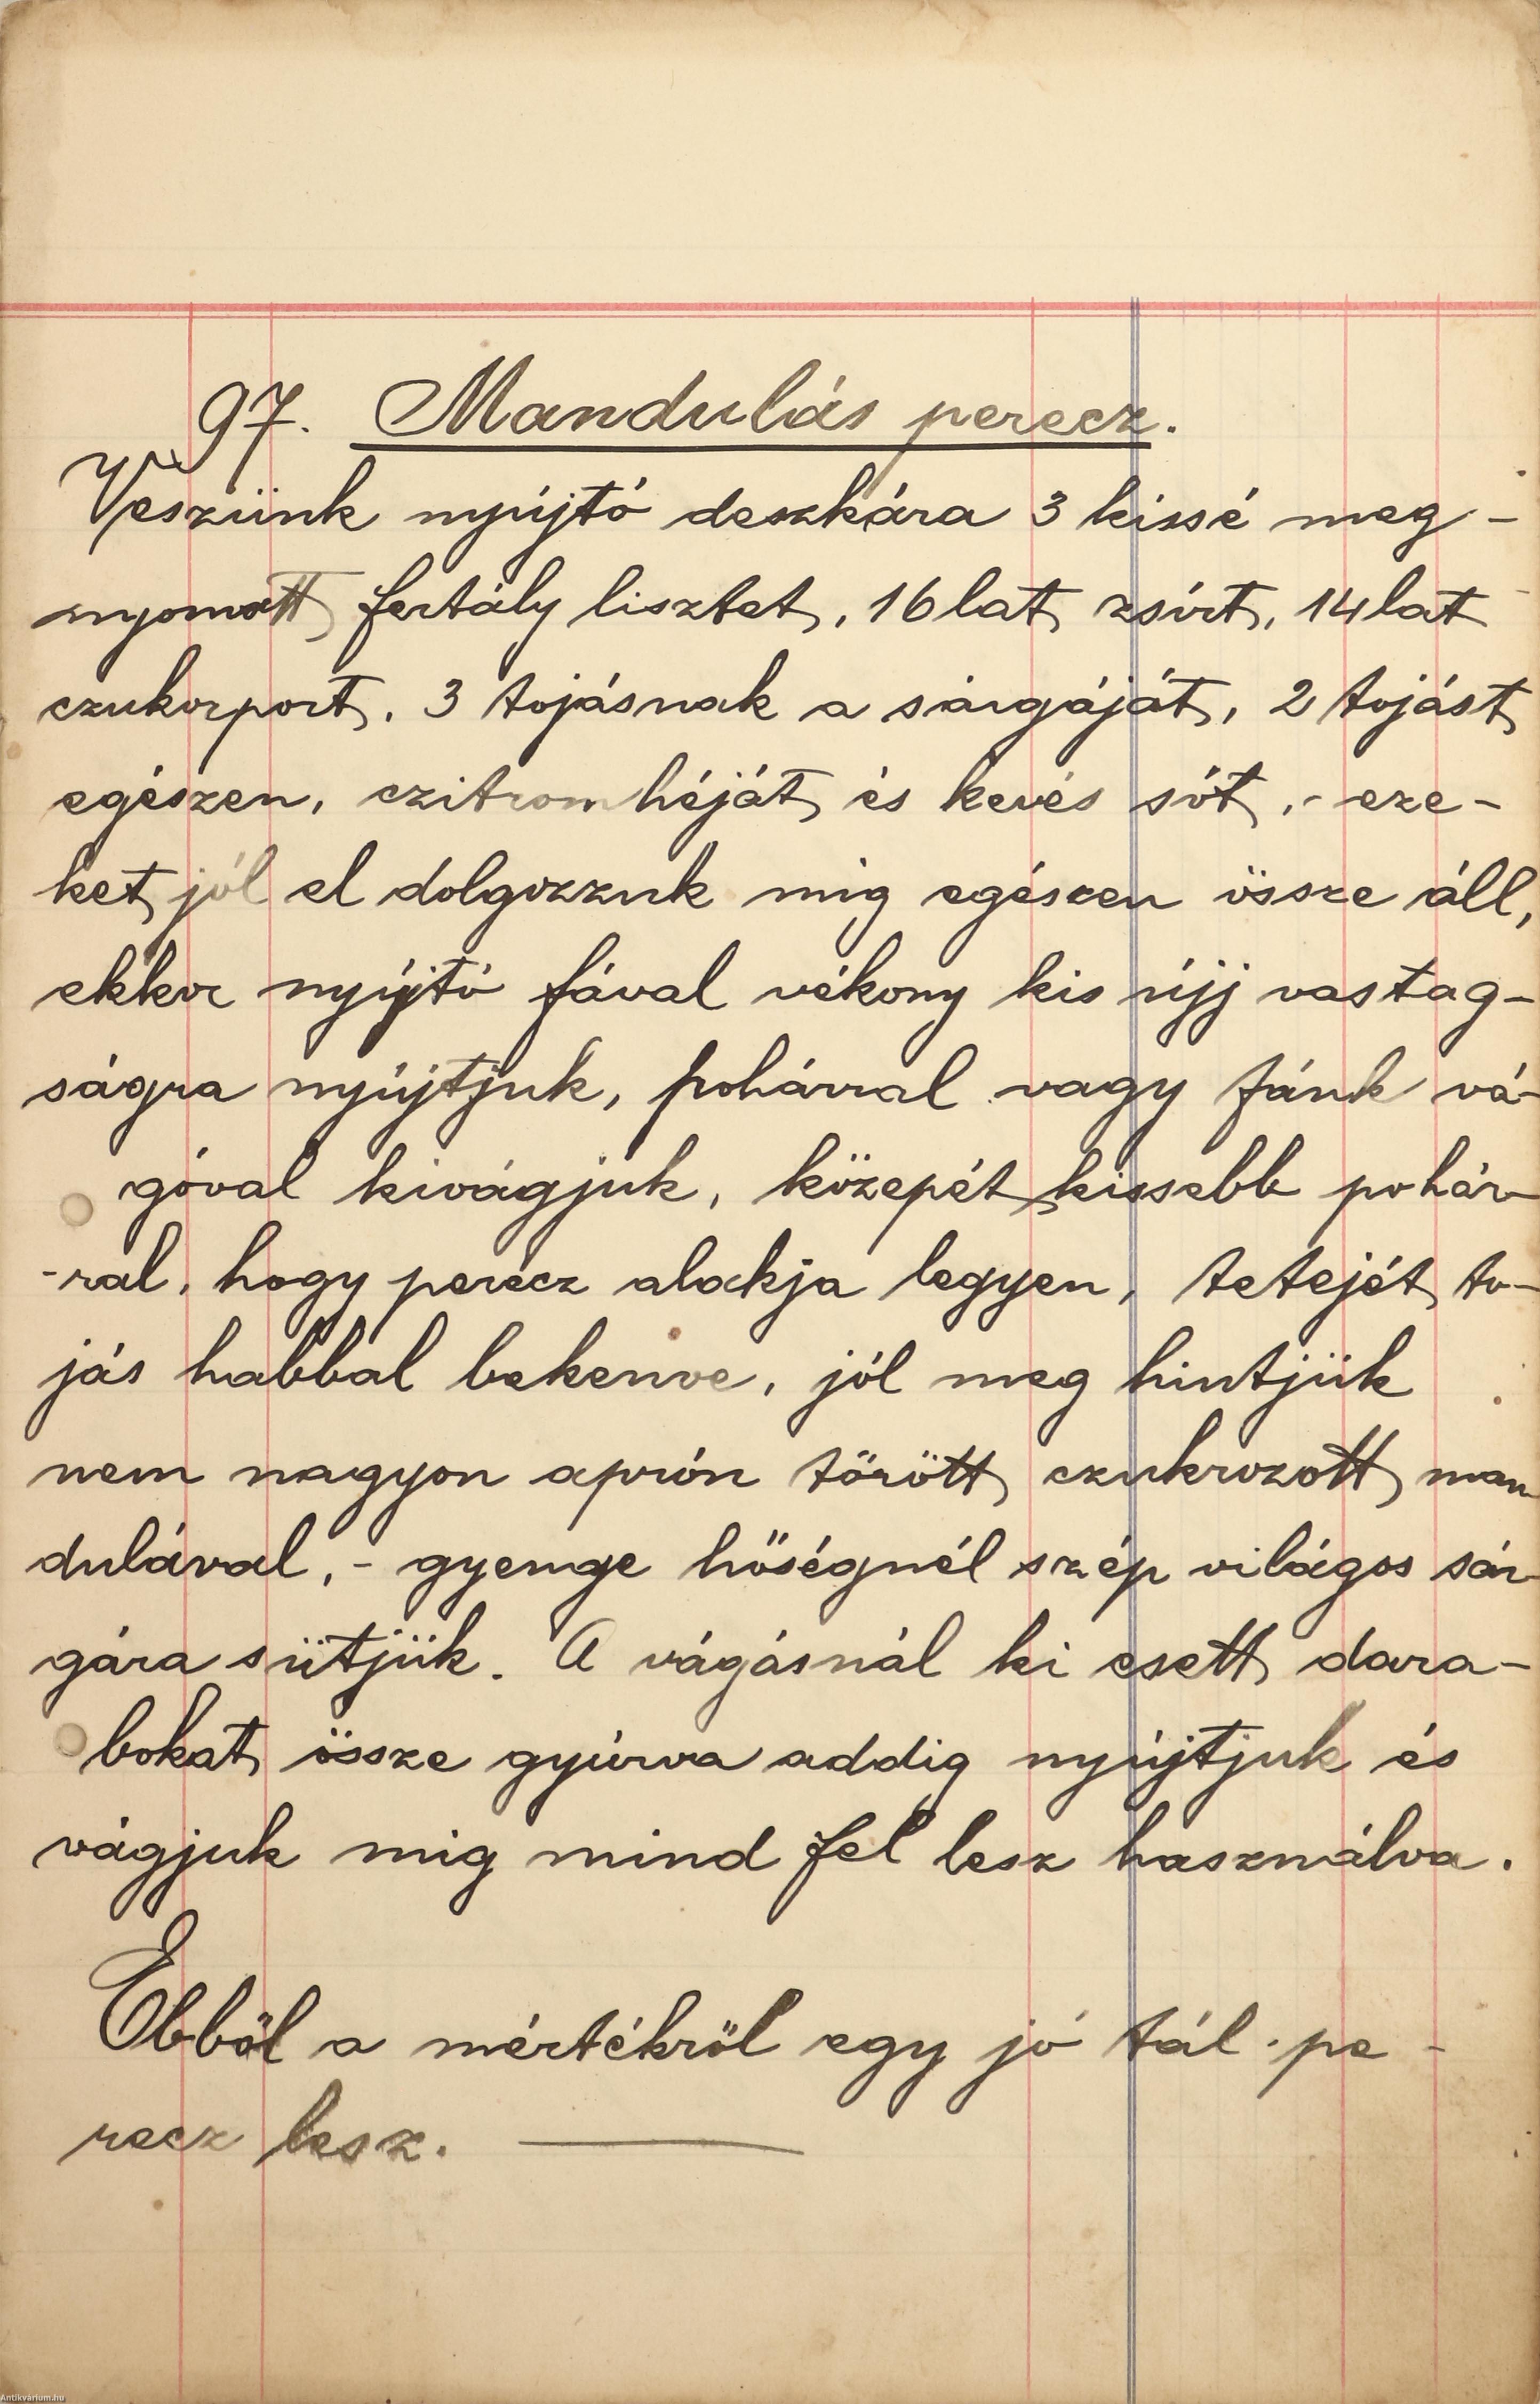 97. Mandulás perecz.
Veszünk nyújtó deszkára 3 kissé meg-
nyomott fertály lisztet, 16 lat zsírt, 14 lat
czukorport, 3 tojásnak a sárgáját, 2 tojást
egészen, czitrom héját és kevés sót, - eze-
ket jól el dolgozzuk mig egészen össze áll,
ekkor nyújtó fával vékony kis újj vastag-
ságra nyújtjuk, pohárral vagy fánk vá-
góval kivágjuk, közepét kissebb pohár-
-ral, hogy perecz alakja legyen, tetejét to-
jás habbal bekenve, jól meg hintjük
nem nagyon aprón törött czukrozott man
dulával, - gyenge hőségnél szép világos sár
gára sütjük. A vágásnál ki esett dara-
bokat össze gyúrva addig nyújtjuk és
vágjuk mig mind fel lesz használva.
Ebből a mértékről egy jó tál pe-
recz lesz.
Antikvarium.hu